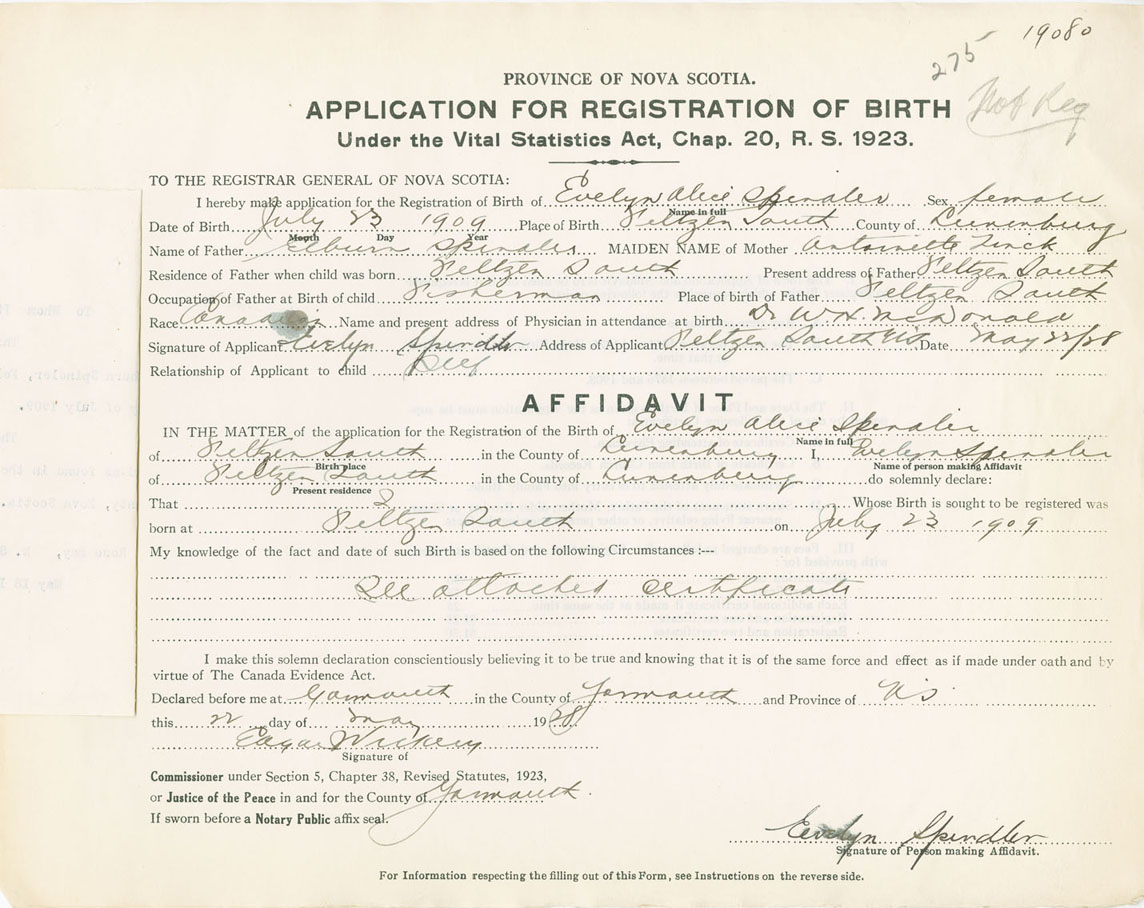 19080
275
Not Reg
PROVINCE OF NOVA SCOTIA.
APPLICATION FOR REGISTRATION OF BIRTH
Under the Vital Statistics Act, Chap. 20, R. S. 1923.
TO THE REGISTRAR GENERAL OF NOVA SCOTIA:
I hereby make application for the Registration of Birth of Evelyn Alice Spindler Sex female
Name in full
Date of Birth July 23 1909 Place of Birth Feltzen South County of Lunenburg
Month Day Year
Name of Father Elburn Spindler MAIDEN NAME of Mother Antoinette Zinck
Residence of Father when child was born Feltzen South Present address of Father Feltzen South
Occupation of Father at Birth of child Fisherman Place of birth of Father Feltzen South
Race Canadian Name and present address of Physician in attendance at birth Dr W.H. McDonald
Signature of Applicant Evelyn Spindler Address of Applicant Feltzen South NS Date May 22/28
Relationship of Applicant to child Self
AFFIDAVIT
IN THE MATTER of the application for the Registration of the Birth of Evelyn Alice Spindler
Name in full
of Feltzen South in the County of Lunenburg I, Evelyn Spindler
Birth place Name of person making Affidavit
of Feltzen South in the County of Lunenburg do solemnly declare:
Present residence
That I Whose Birth is sought to be registered was
born at Feltzen South on July 23 1909
My knowledge of the fact and date of such Birth is based on the following Circumstances :---
See attached certificate
I make this solemn declaration conscientiously believing it to be true and knowing that it is of the same force and effect as if made under oath and by
virtue of The Canada Evidence Act.
Declared before me at Yarmouth in the County of Yarmouth and Province of NS
this 22 day of May 1928
Edgar Vickery
Signature of
Commissioner under Section 5, Chapter 38, Revised Statutes, 1923,
or Justice of the Peace in and for the County of Yarmouth.
If sworn before a Notary Public affix seal.
Evelyn Spindler
Signature of Person making Affidavit.
For Information respecting the filling out of this Form, see Instructions on the reverse side.